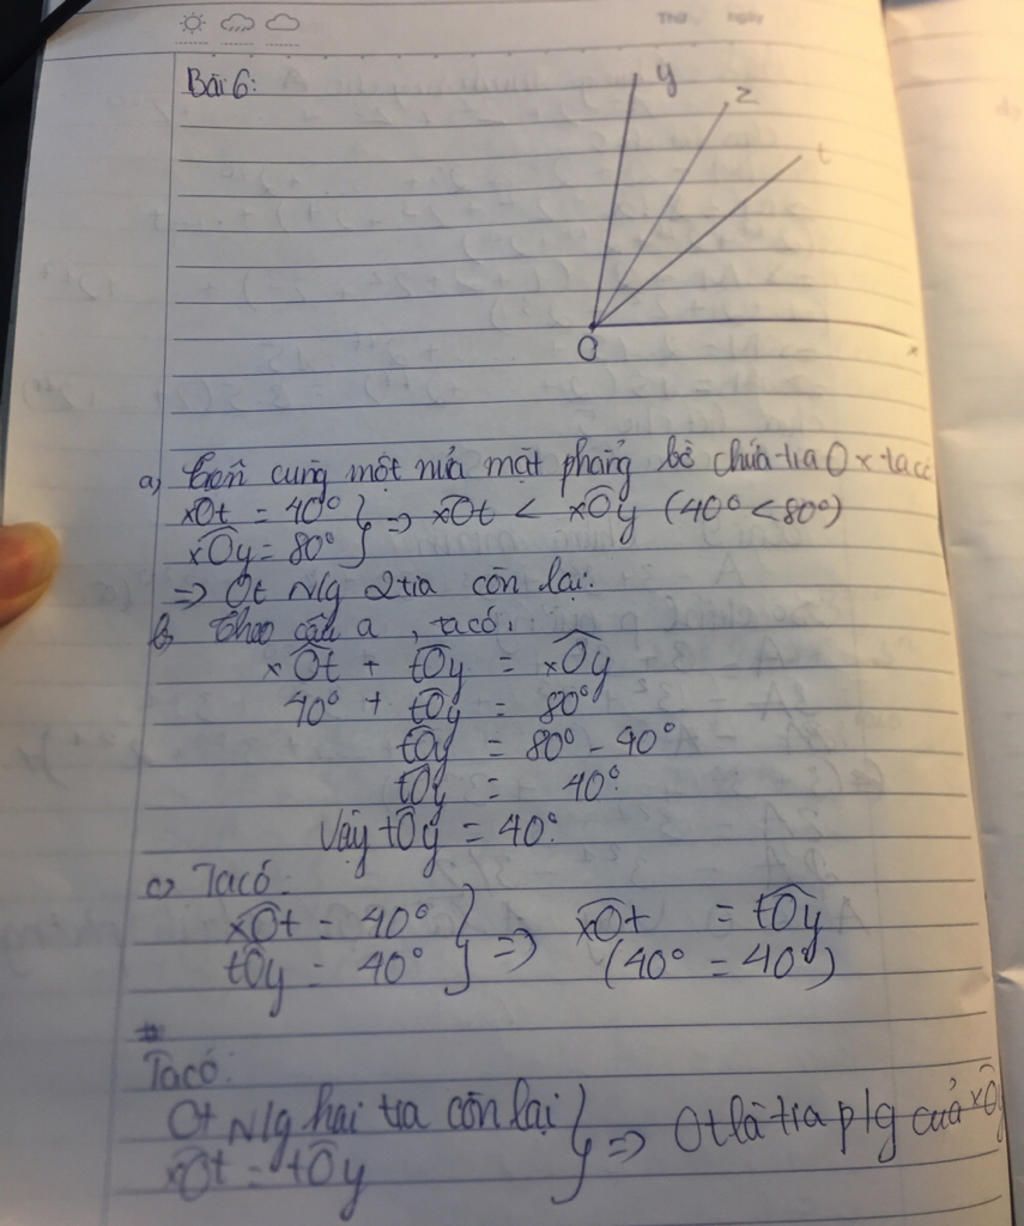 Thứ Ngày
Bài 6:
y
z
t
O
x
a) Trên cùng một nửa mặt phẳng bờ chứa tia Ox ta có
xOt = 40° } => xOt < xOy (40° < 80°)
xOy = 80°
=> Ot N/g 2 tia còn lại.
b) Theo câu a, ta có:
xOt + tOy = xOy
40° + tOy = 80°
tOy = 80° - 40°
tOy = 40°
Vậy tOy = 40°.
c) Ta có:
xOt = 40° } => xOt = tOy
tOy = 40° (40° = 40°)
Ta có:
Ot N/g hai tia còn lại } => Ot là tia p/g của xOy
xOt = tOy